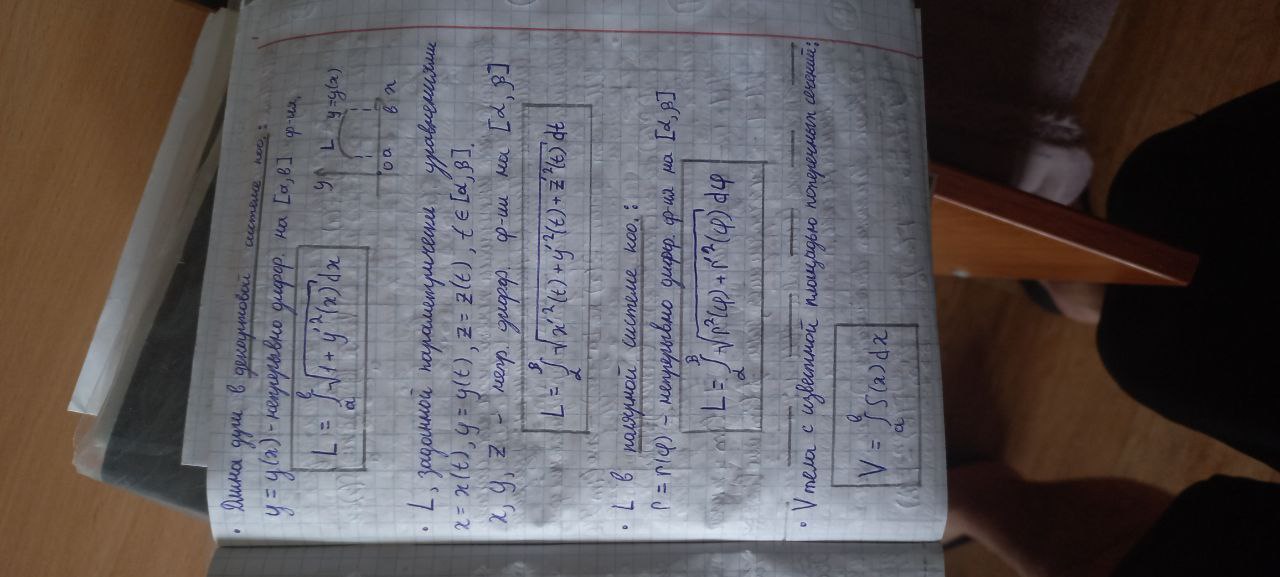 • Длина дуги в декартовой системе коо.:
y = y(x) - непрерывно дифф. на [a, в] ф-ия,
L = ∫ₐᵇ √(1 + y'²(x)) dx
y L y=y(x)
0 a в x
• L, заданной параметрически уравнениями
x = x(t), y = y(t), z = z(t), t ∈ [α, β].
x, y, z - непр. дифф. ф-ии на [α, β]
L = ∫_α^β √(x'²(t) + y'²(t) + z'²(t)) dt
• L в полярной системе коо.:
r = r(φ) - непрерывно дифф. ф-ия на [α, β]
L = ∫_α^β √(r²(φ) + r'²(φ)) dφ
• V тела с известной площадью поперечных сечений:
V = ∫ₐᵇ S(x) dx